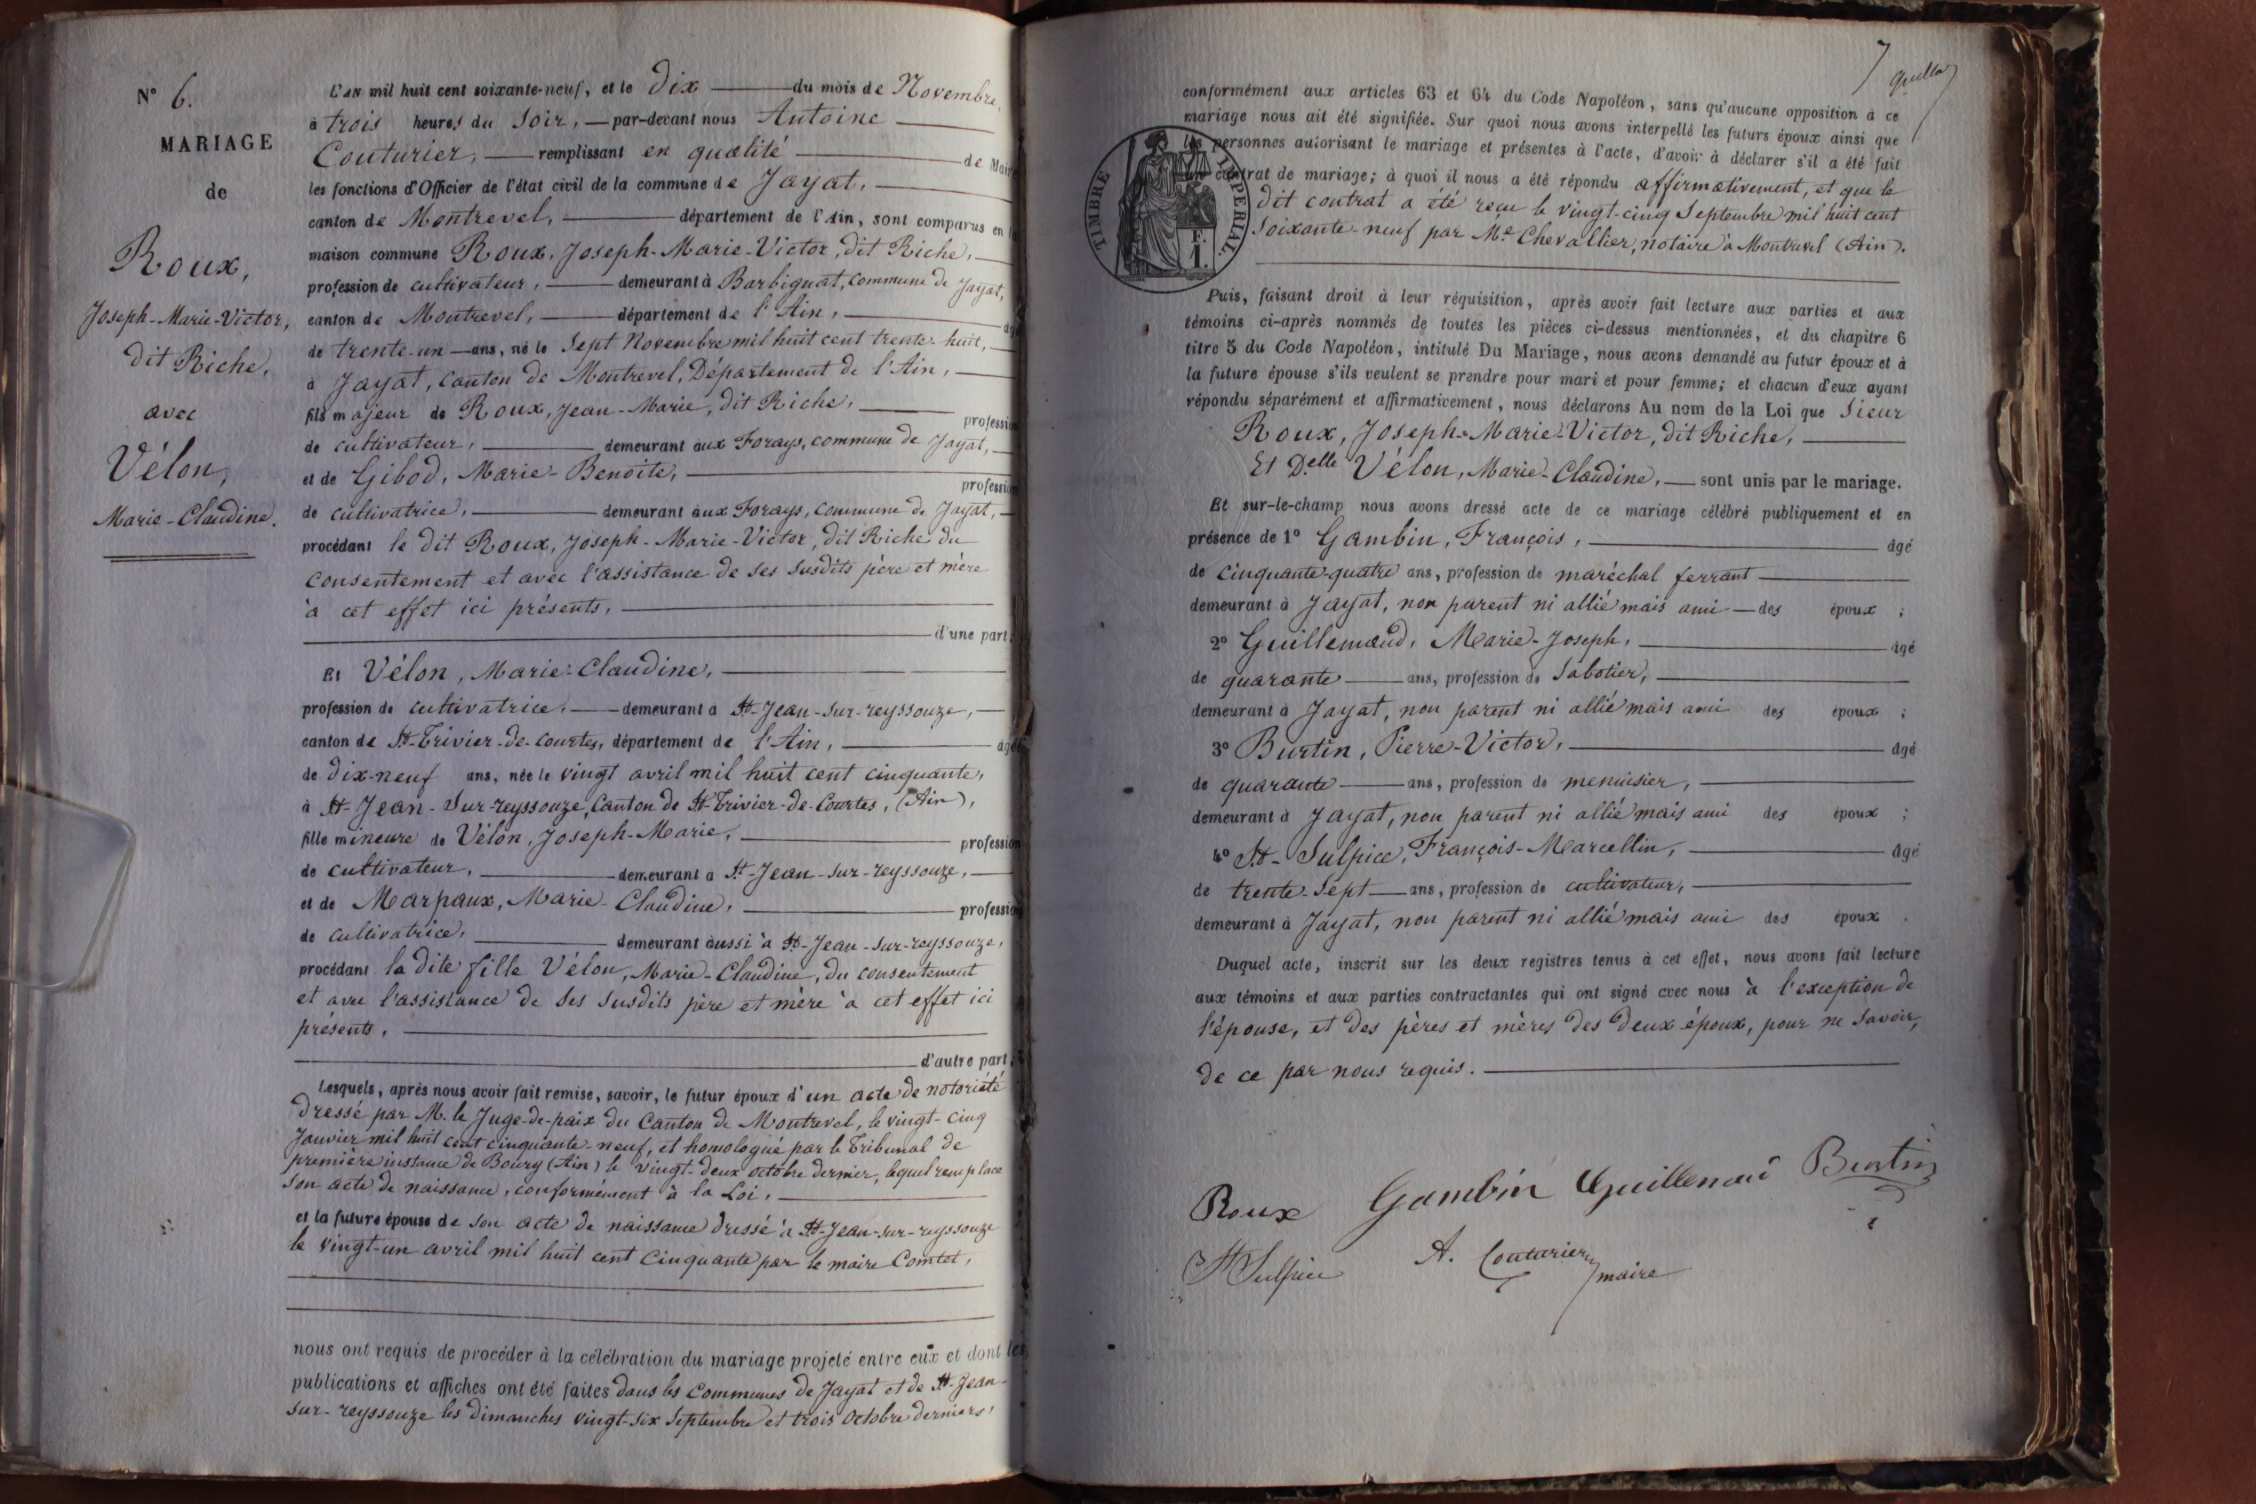 N° 6.
MARIAGE
de
Roux,
Joseph-Marie-Victor,
dit Riche,
avec
Vélon,
Marie-Claudine.
L'AN mil huit cent soixante-neuf, et le dix du mois de Novembre,
à trois heures du soir, par-devant nous Antoine
Couturier, remplissant en qualité de Maire
les fonctions d'Officier de l'état civil de la commune de Jayat,
canton de Montrevel, département de l'Ain, sont comparus en la
maison commune Roux, Joseph-Marie-Victor, dit Riche,
profession de cultivateur, demeurant à Barbignat, commune de Jayat,
canton de Montrevel, département de l'Ain, âgé
de trente-un ans, né le sept Novembre mil huit cent trente-huit,
à Jayat, canton de Montrevel, Département de l'Ain,
fils majeur de Roux, Jean-Marie, dit Riche, profession
de cultivateur, demeurant aux Forays, commune de Jayat,
et de Gibod, Marie-Benoite, profession
de cultivatrice, demeurant aux Forays, commune de Jayat,
procédant le dit Roux, Joseph-Marie-Victor, dit Riche du
consentement et avec l'assistance de ses susdits père et mère
à cet effet ici présents,
d'une part;
Et Vélon, Marie-Claudine,
profession de cultivatrice, demeurant à St-Jean-sur-reyssouze,
canton de St-Trivier-de-Courtes, département de l'Ain, âgée
de dix-neuf ans, née le vingt avril mil huit cent cinquante,
à St-Jean-sur-reyssouze, Canton de St-Trivier-de-Courtes, (Ain),
fille mineure de Vélon, Joseph-Marie, profession
de cultivateur, demeurant à St-Jean-sur-reyssouze,
et de Marpaux, Marie-Claudine, profession
de cultivatrice, demeurant aussi à St-Jean-sur-reyssouze,
procédant la dite fille Vélon, Marie-Claudine, du consentement
et avec l'assistance de ses susdits père et mère à cet effet ici
présents,
d'autre part;
Lesquels, après nous avoir fait remise, savoir, le futur époux d'un acte de notoriété
dressé par M. le Juge-de-paix du Canton de Montrevel, le vingt-cinq
Janvier mil huit cent cinquante-neuf, et homologué par le Tribunal de
première instance de Bourg (Ain) le vingt-deux octobre dernier, lequel remplace
son acte de naissance, conformément à la Loi,
et la future épouse de son acte de naissance dressé à St-Jean-sur-reyssouze
le vingt-un avril mil huit cent cinquante par le maire Comtet,
nous ont requis de procéder à la célébration du mariage projeté entre eux et dont les
publications et affiches ont été faites dans les communes de Jayat et de St-Jean-
sur-reyssouze les dimanches vingt-six septembre et trois octobre derniers,
7
conformément aux articles 63 et 64 du Code Napoléon, sans qu'aucune opposition à ce
mariage nous ait été signifiée. Sur quoi nous avons interpellé les futurs époux ainsi que
les personnes autorisant le mariage et présentes à l'acte, d'avoir à déclarer s'il a été fait
un contrat de mariage; à quoi il nous a été répondu affirmativement, et que le
dit contrat a été reçu le vingt-cinq Septembre mil huit cent
soixante-neuf par Me. Chevallier, notaire à Montrevel (Ain).
TIMBRE IMPERIAL.
F.
1.
Puis, faisant droit à leur réquisition, après avoir fait lecture aux parties et aux
témoins ci-après nommés de toutes les pièces ci-dessus mentionnées, et du chapitre 6
titre 5 du Code Napoléon, intitulé Du Mariage, nous avons demandé au futur époux et à
la future épouse s'ils veulent se prendre pour mari et pour femme; et chacun d'eux ayant
répondu séparément et affirmativement, nous déclarons Au nom de la Loi que sieur
Roux, Joseph-Marie-Victor, dit Riche,
Et Delle Vélon, Marie-Claudine, sont unis par le mariage.
Et sur-le-champ nous avons dressé acte de ce mariage célébré publiquement et en
présence de 1° Gambin, François, âgé
de cinquante-quatre ans, profession de maréchal ferrant
demeurant à Jayat, non parent ni allié mais ami des époux ;
2° Guillemaud, Marie-Joseph, âgé
de quarante ans, profession de sabotier,
demeurant à Jayat, non parent ni allié mais ami des époux ;
3° Burtin, Pierre-Victor, âgé
de quarante ans, profession de menuisier,
demeurant à Jayat, non parent ni allié mais ami des époux ;
4° St-Sulpice, François-Marcellin, âgé
de trente-sept ans, profession de cultivateur,
demeurant à Jayat, non parent ni allié mais ami des époux .
Duquel acte, inscrit sur les deux registres tenus à cet effet, nous avons fait lecture
aux témoins et aux parties contractantes qui ont signé avec nous à l'exception de
l'épouse, et des pères et mères des deux époux, pour ne savoir,
de ce par nous requis.
Roux Gambin Guillemaud Burtin
St Sulpice A. Couturier maire